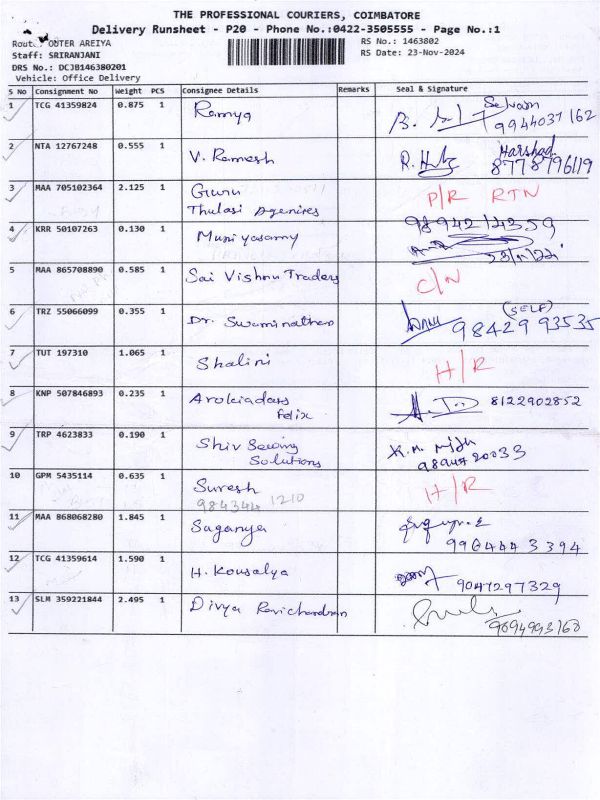 THE PROFESSIONAL COURIERS, COIMBATORE
Delivery Runsheet - P20 - Phone No.:0422-3505555 - Page No.:1
Route: OUTER AREIYA RS No.: 1463802
Staff: SRIRANJANI RS Date: 23-Nov-2024
DRS No.: DCJB146380201
Vehicle: Office Delivery
S No Consignment No Weight PCS Consignee Details Remarks Seal & Signature
1 TCG 41359824 0.875 1 Ramya Selvam
9944037162
2 NTA 12767248 0.555 1 V. Ramesh Harshad
8778796119
3 MAA 705102364 2.125 1 Guru P/R RTN
Thulasi Agenires
4 KRR 50107263 0.130 1 Muniyasamy 9894214359
23/11/24
5 MAA 865708890 0.585 1 Sai Vishnu Traders C/N
6 TRZ 55066099 0.355 1 Dr. Swaminathan (SELF)
98429 93535
7 TUT 197310 1.065 1 Shalini H/R
8 KNP 507846893 0.235 1 Arokiadass 8122902852
Felix
9 TRP 4623833 0.190 1 Shiv Sewing
Solutions 9894720033
10 GPM 5435114 0.635 1 Suresh H/R
984344 1210
11 MAA 868068280 1.845 1 Saganya
9964443394
12 TCG 41359614 1.590 1 H. Kousalya 9047297329
13 SLM 359221844 2.495 1 Divya Ravichandran
9894993168